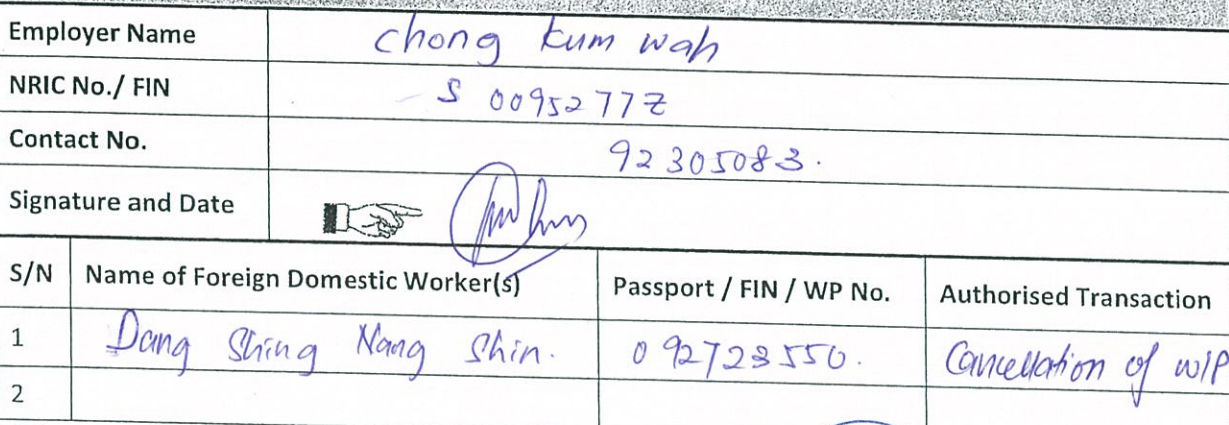 Employer Name chong kum wah
NRIC No./ FIN S 0095277Z
Contact No. 92305083.
Signature and Date
S/N Name of Foreign Domestic Worker(s) Passport / FIN / WP No. Authorised Transaction
1 Dang Shing Nang Shin. 0 92723550. Cancellation of W/P
2